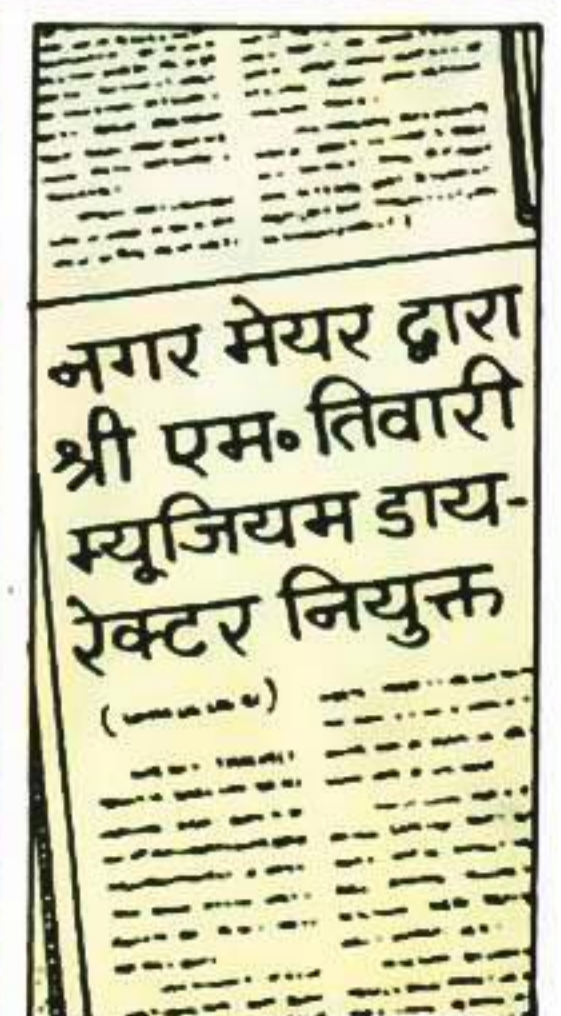 नगर मेयर द्वारा
श्री एम॰ तिवारी
म्यूजियम डाय-
रेक्टर नियुक्त